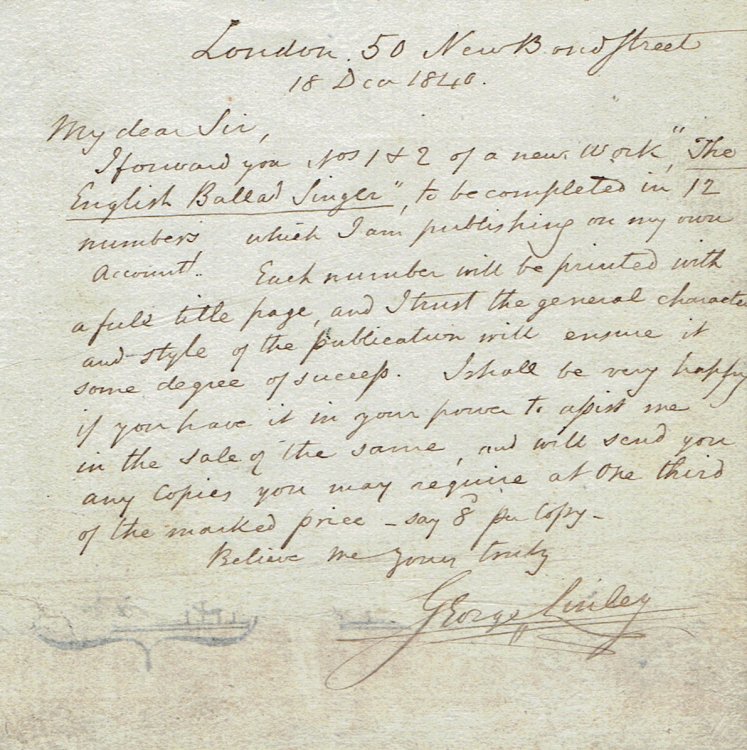 London. 50 New Bond Street
18 Dec 1840.
My dear Sir,
I forward you Nos 1 & 2 of a new Work, "The
English Ballad Singer", to be completed in 12
numbers which I am publishing on my own
Account. Each number will be printed with
a full title page, and I trust the general character
and style of the publication will ensure it
some degree of success. I shall be very happy
if you have it in your power to assist me
in the sale of the same, and will send you
any Copies you may require at One third
of the marked price – say 8d per Copy –
Believe me Yours truly
George Linley